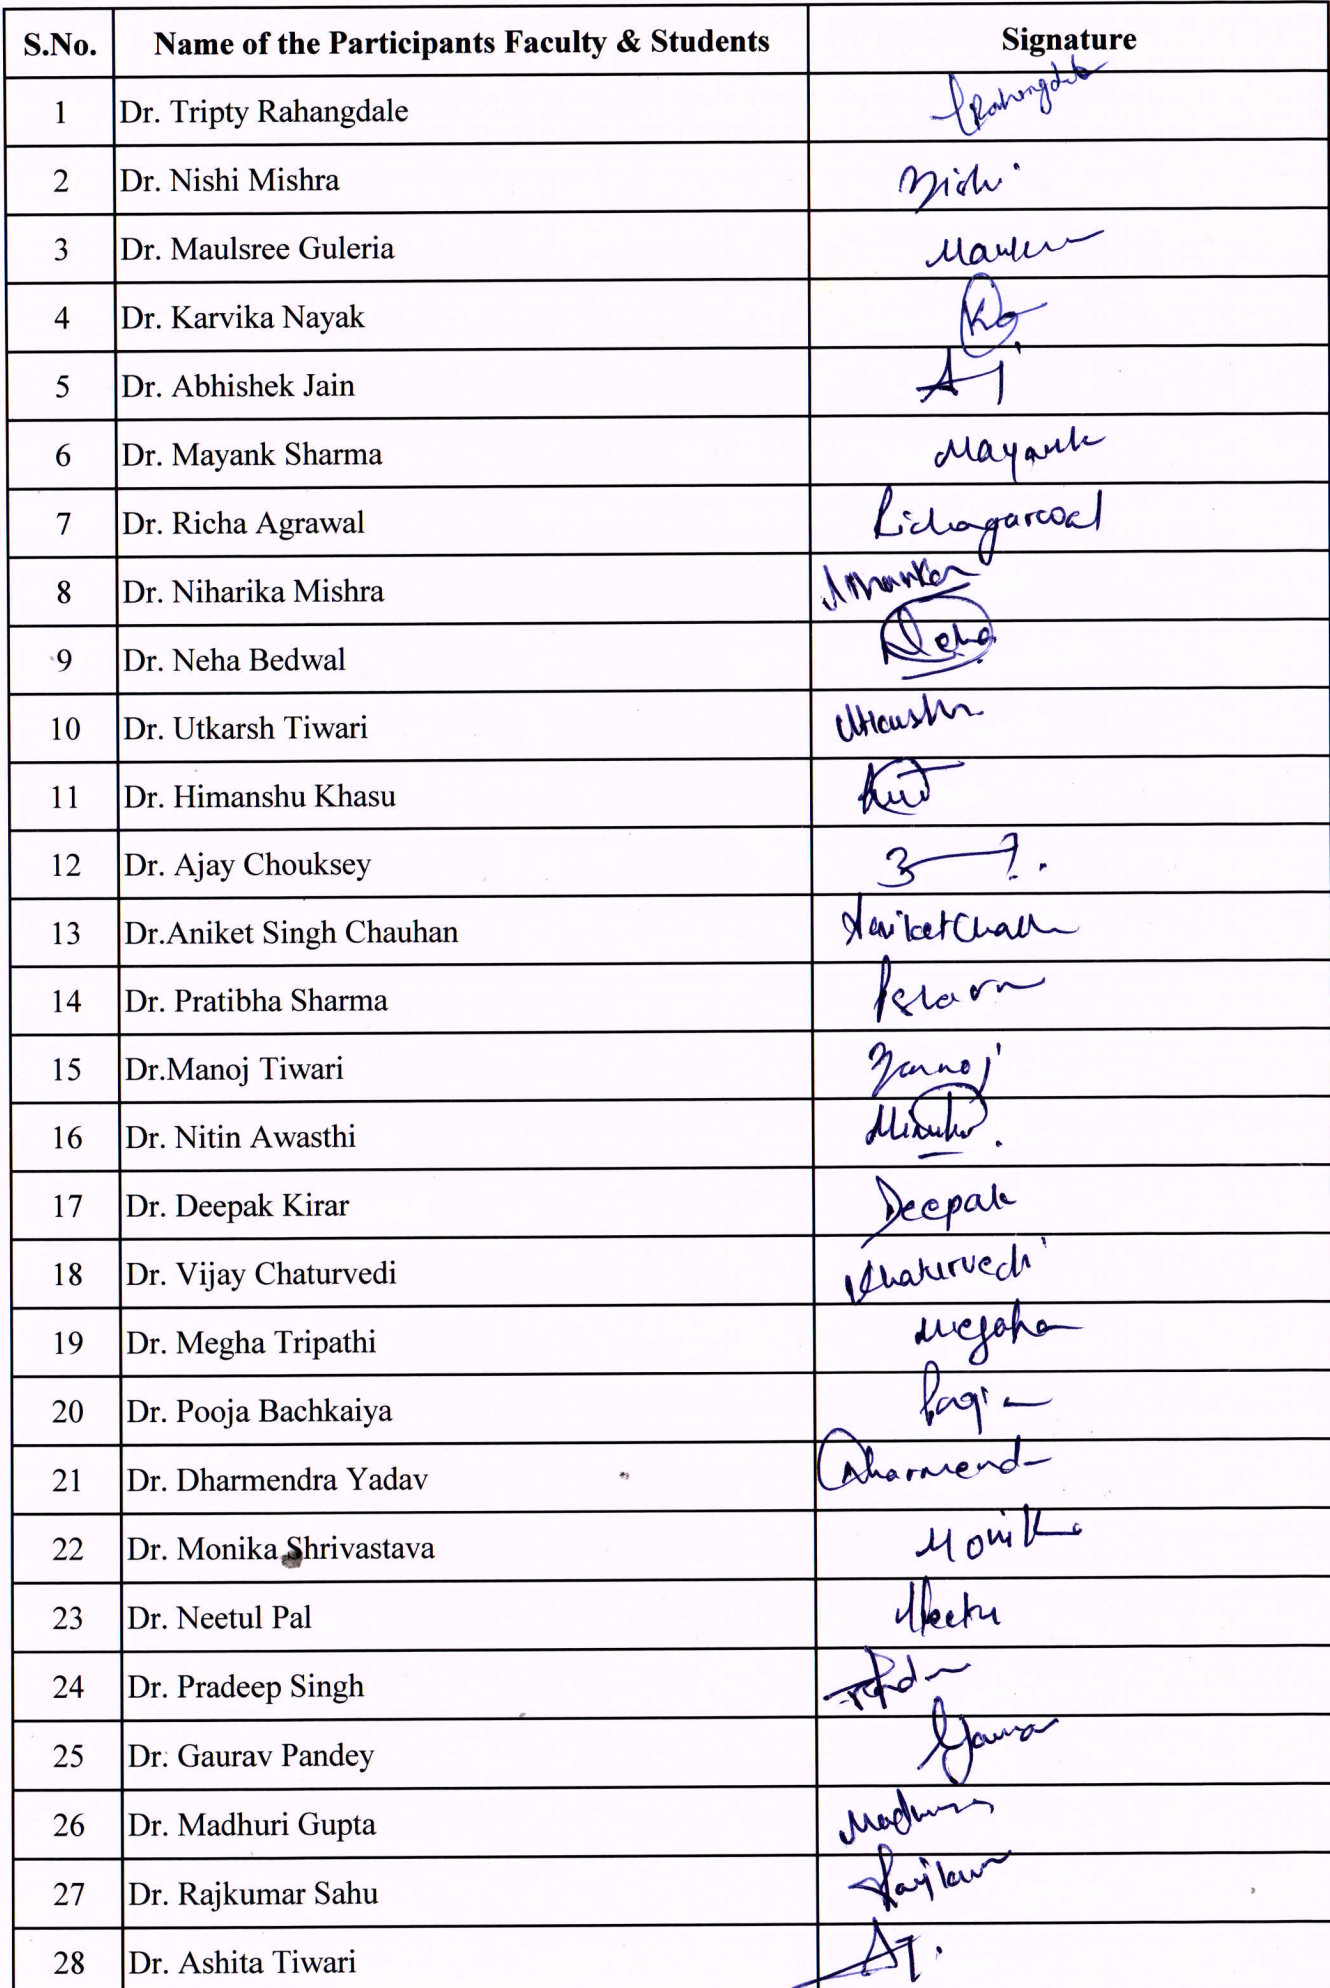 S.No. Name of the Participants Faculty & Students Signature
1 Dr. Tripty Rahangdale Rahangdale
2 Dr. Nishi Mishra Nishi
3 Dr. Maulsree Guleria
4 Dr. Karvika Nayak
5 Dr. Abhishek Jain AJ
6 Dr. Mayank Sharma Mayank
7 Dr. Richa Agrawal Richagarwal
8 Dr. Niharika Mishra
9 Dr. Neha Bedwal Neha
10 Dr. Utkarsh Tiwari Utkarsh
11 Dr. Himanshu Khasu
12 Dr. Ajay Chouksey
13 Dr.Aniket Singh Chauhan
14 Dr. Pratibha Sharma
15 Dr.Manoj Tiwari Manoj
16 Dr. Nitin Awasthi
17 Dr. Deepak Kirar Deepak
18 Dr. Vijay Chaturvedi Chaturvedi
19 Dr. Megha Tripathi Megha
20 Dr. Pooja Bachkaiya
21 Dr. Dharmendra Yadav
22 Dr. Monika Shrivastava Monika
23 Dr. Neetul Pal
24 Dr. Pradeep Singh
25 Dr. Gaurav Pandey
26 Dr. Madhuri Gupta
27 Dr. Rajkumar Sahu
28 Dr. Ashita Tiwari AT.